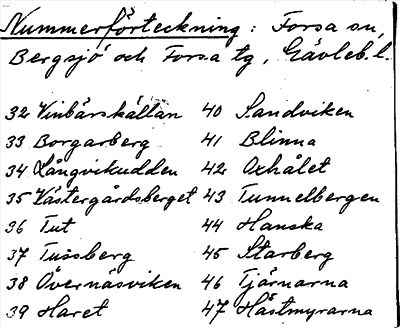 Nummerförteckning: Forsa sn,
Bergsjö och Forsa tg, Gävleb.l.
32 Vinbärskällan
33 Borgarberg
34 Långvikudden
35 Västergårdsberget
36 Tut
37 Tussberg
38 Övernäsviken
39 Haret
40 Sandviken
41 Blinna
42 Oxhålet
43 Tunnelbergen
44 Hanska
45 Starberg
46 Tjärnarna
47 Hästmyrarna